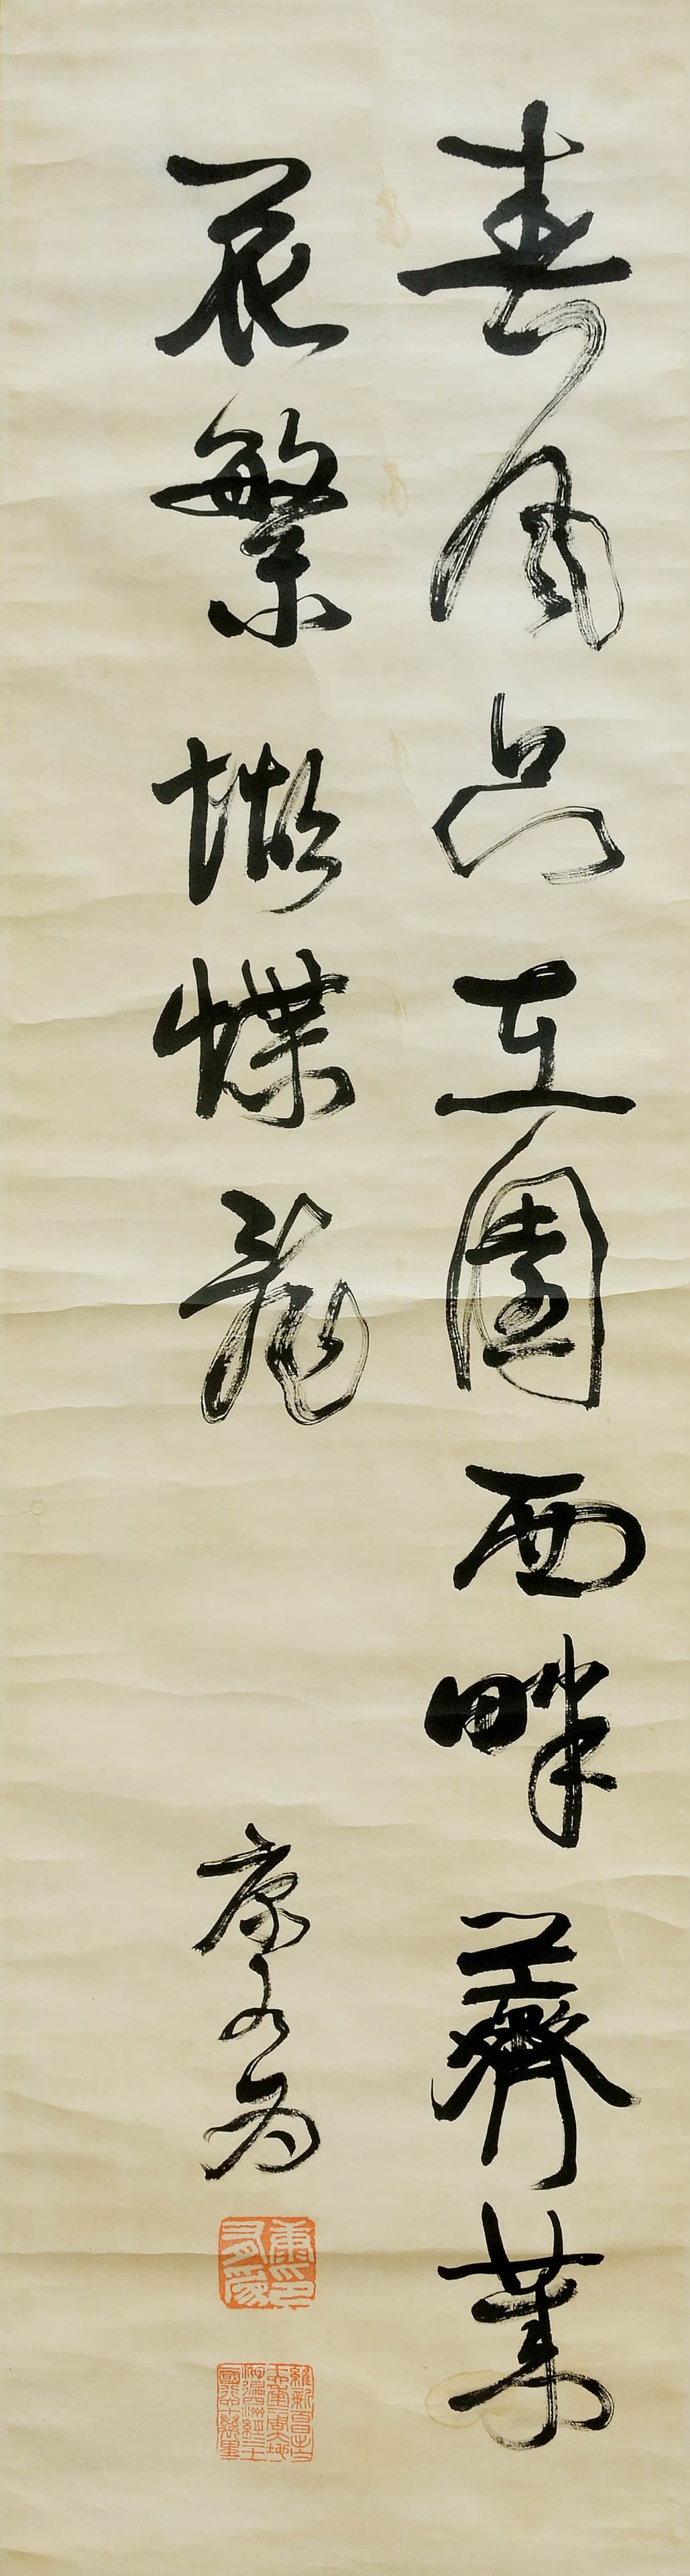 春風只在園西畔薺菜
花繁蝴蝶亂
康有為
康有為印
維新百日出亡十六年三周大地遊遍四洲經三十一國行六十萬里